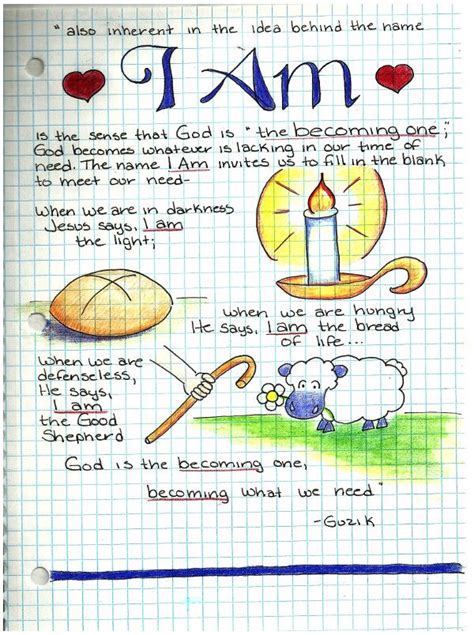 "also inherent in the idea behind the name
I Am
is the sense that God is "the becoming one;"
God becomes whatever is lacking in our time of
need. The name I Am invites us to fill in the blank
to meet our need-
When we are in darkness
Jesus says, I am
the light;
when we are hungry
He says, I am the bread
of life...
When we are
defenseless,
He says,
I am
the Good
Shepherd
God is the becoming one,
becoming what we need"
-Guzik